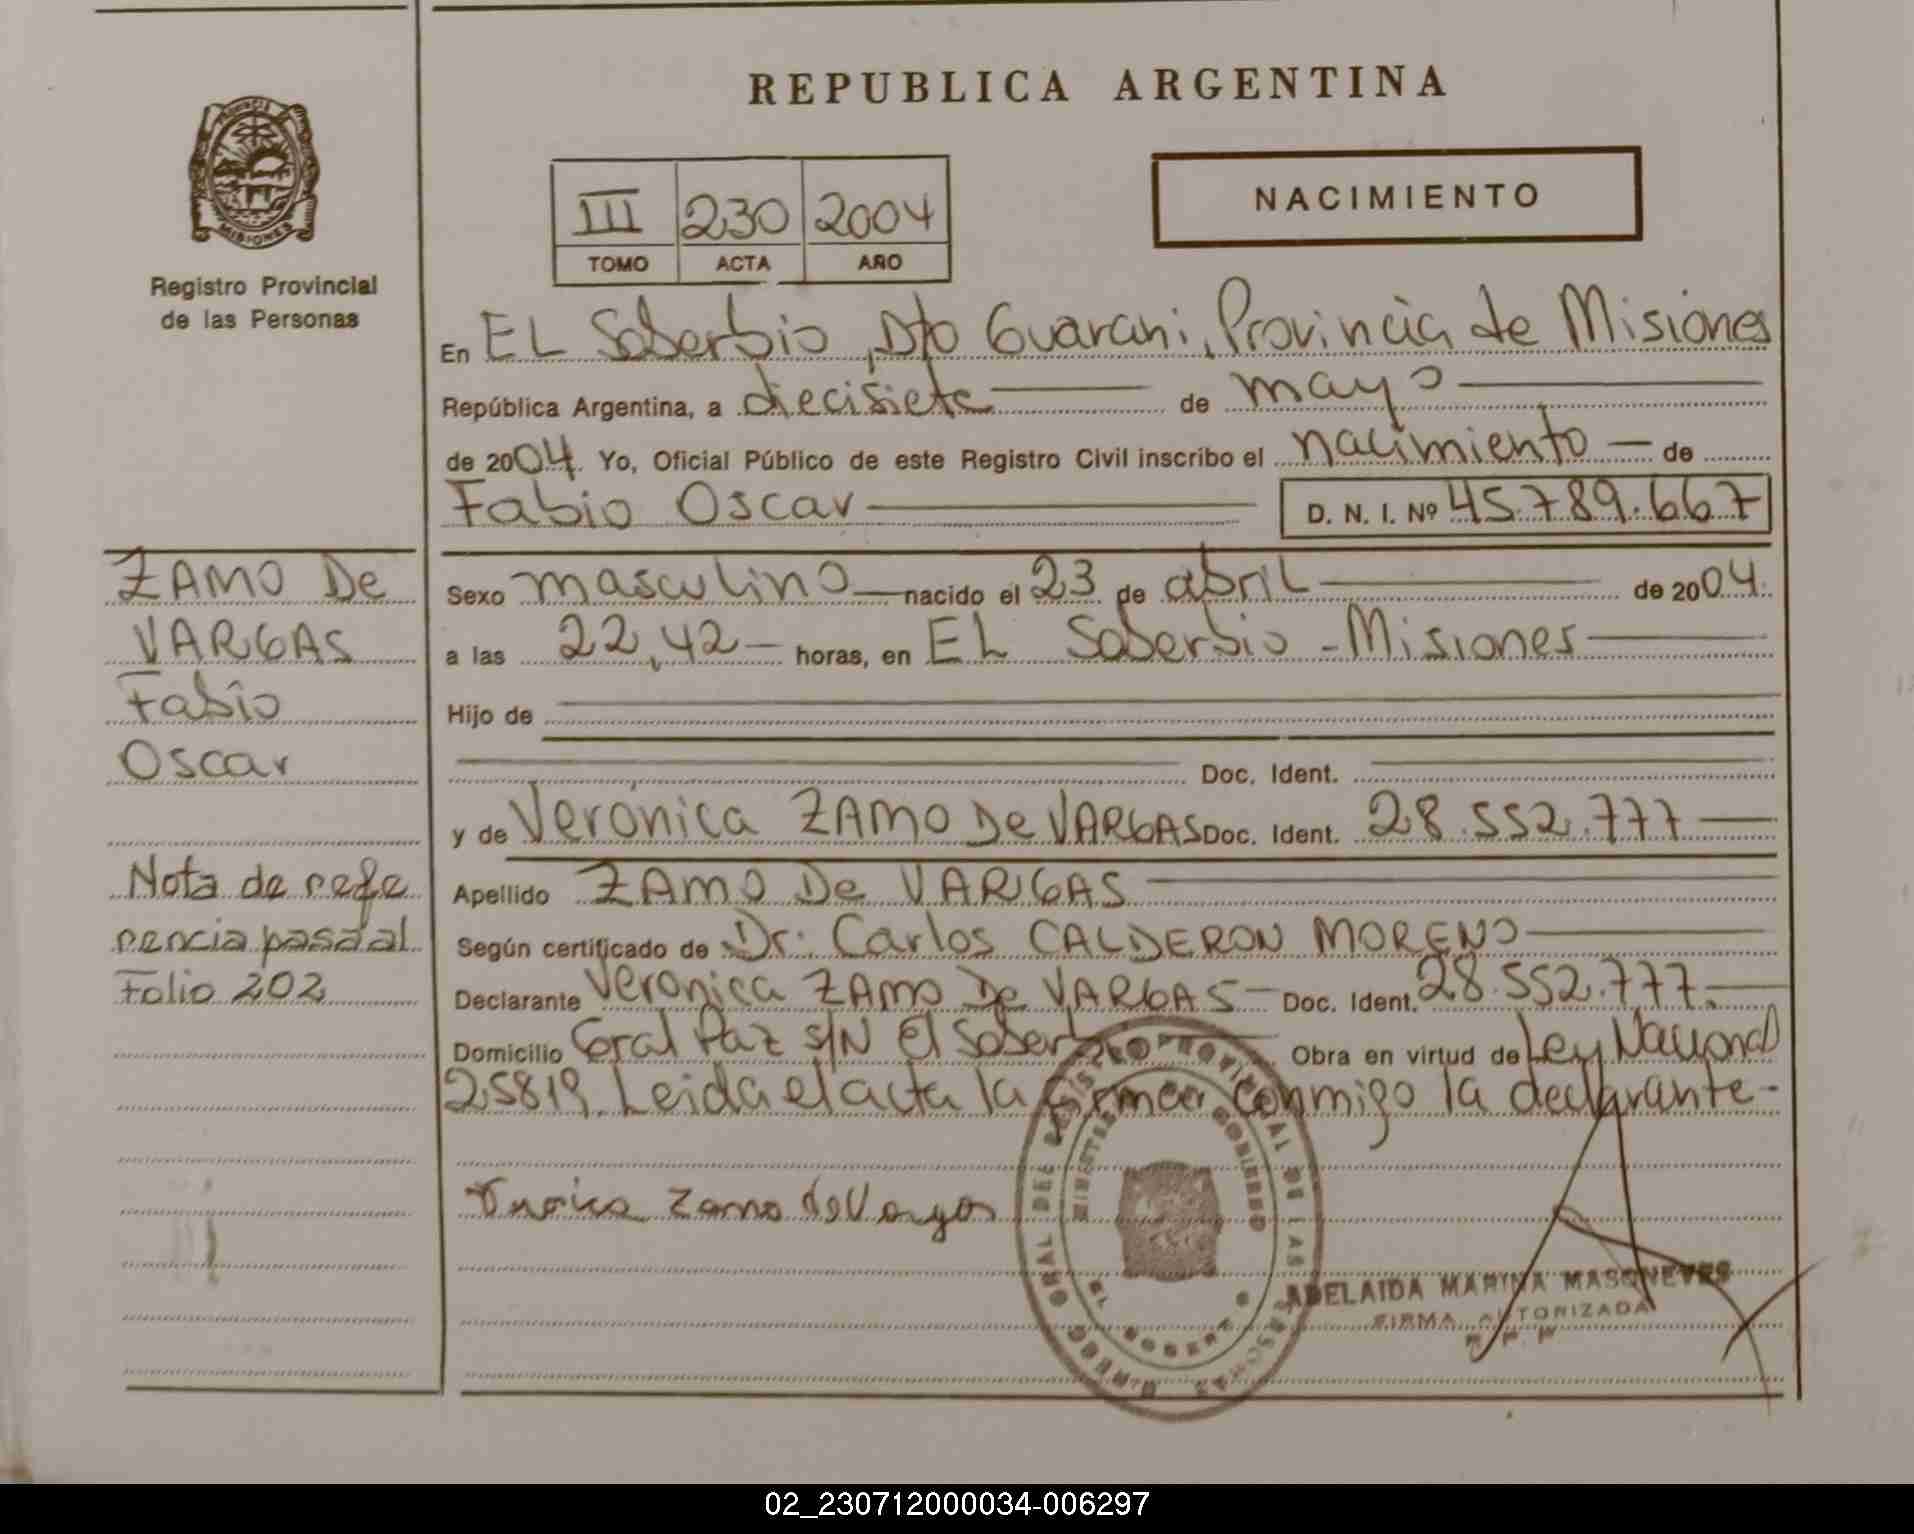 REPUBLICA ARGENTINA
PROVINCIA
MISIONES
Registro Provincial
de las Personas
III 230 2004
TOMO ACTA AÑO
NACIMIENTO
En EL Soberbio, Dto Guarani, Provincia de Misiones
República Argentina, a diecisiete de mayo
de 2004. Yo, Oficial Público de este Registro Civil inscribo el nacimiento de
Fabio Oscar D. N. I. Nº 45.789.667
ZAMO De
VARGAS
Fabio
Oscar
Nota de refe
rencia pasda al
Folio 202
Sexo masculino nacido el 23 de abril de 2004.
a las 22,42 horas, en EL Soberbio - Misiones
Hijo de
Doc. Ident.
y de Veronica ZAMO De VARGAS Doc. Ident. 28.552.777
Apellido ZAMO De VARGAS
Según certificado de Dr. Carlos CALDERON MORENO
Declarante Veronica ZAMO De VARGAS Doc. Ident. 28.552.777.
Domicilio Gral Paz S/N El Sober Obra en virtud de Ley Nacional
25819. Leida el acta la firman conmigo la declarante-
Zamo de Vargas
REGISTRO PROVINCIAL DE LAS PERSONAS
ADELAIDA MARINA MASONEVES
FIRMA AUTORIZADA
R.P.P.
02_230712000034-006297